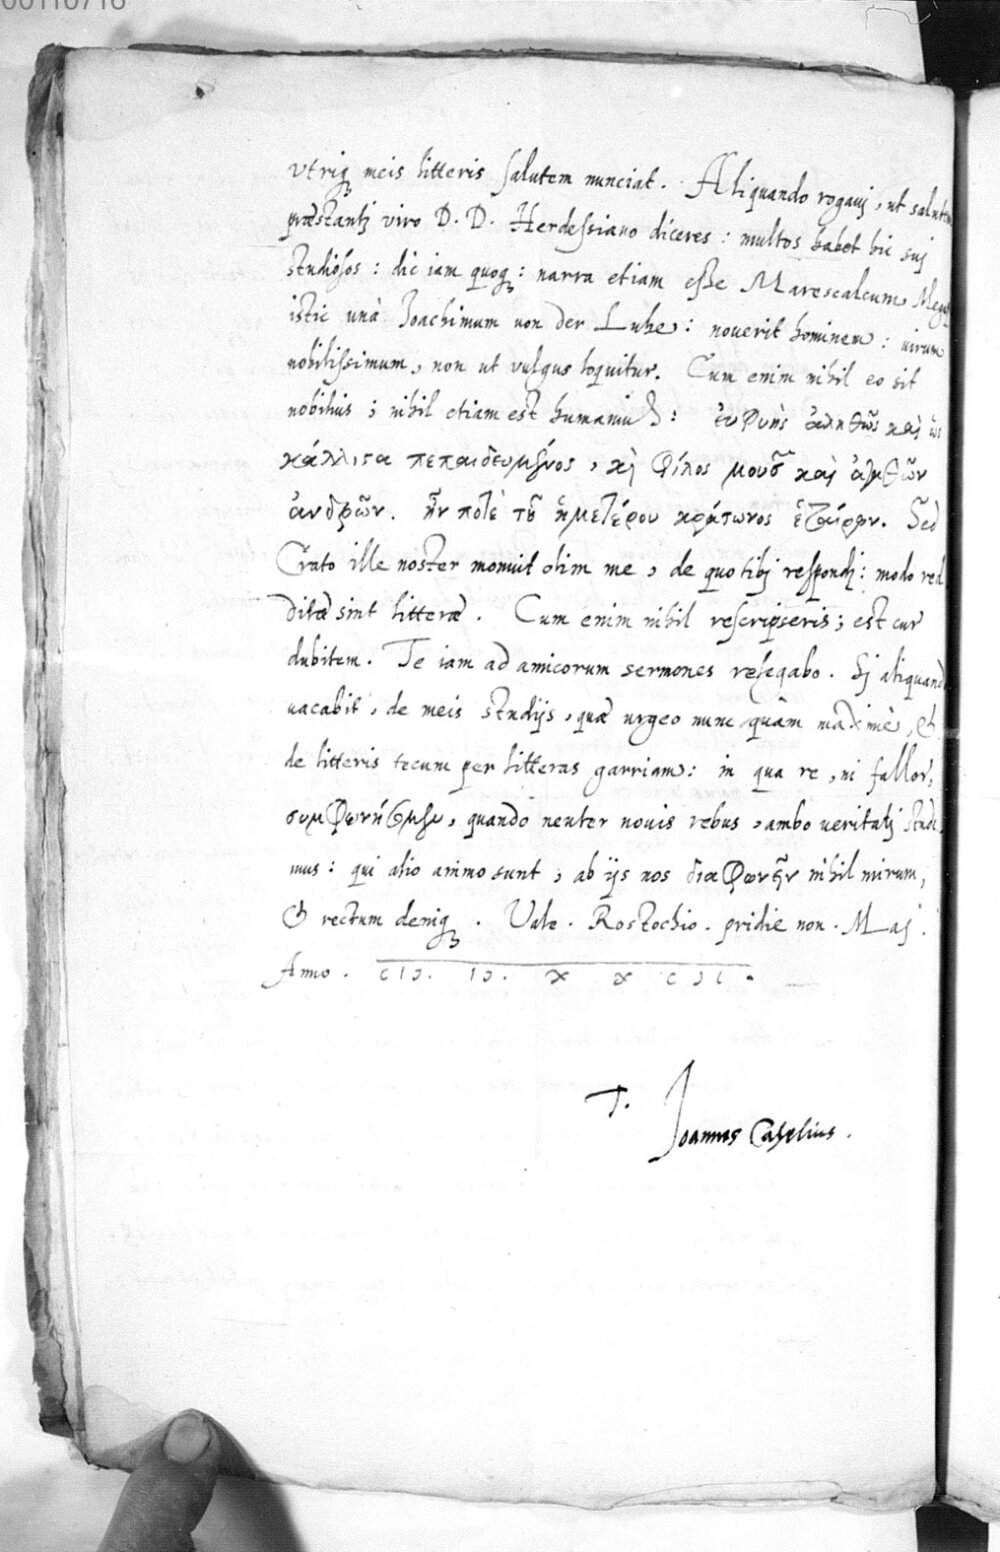 00110716
vtriq meis litteris salutem nunciat. Aliquando rogavj, ut salutem
præstantj viro D. D. Herdessiano diceres: multos habet hic suj
studiosos: dic iam quoq: narra etiam esse Marescalcum
istic unà Joachimum von der Luhe: noverit hominem: virum
nobilissimum, non ut vulgus loquitur. Cum enim nihil eo sit
nobilius; nihil etiam est humanius: εὐφυὴς ἀληθῶς καὶ ὡς
κάλλιστα πεπαιδευμένος, κὶ φίλος μουσῶν καὶ ἀγαθῶν
ἀνδρῶν. ἦν ποτὲ τοῦ ἡμετέρου κράτωνος ἑταῖρος. Sed
Crato ille noster monuit olim me, de quo tibj respondj: modo red
ditæ sint litteræ. Cum enim nihil rescripseris; est cur
dubitem. Te iam ad amicorum sermones relegabo. Sj aliquando
vacabit, de meis studijs, quæ urgeo nunc quàm maximè, &
de litteris tecum per litteras garriam: in qua re, ni fallor,
συμφωνήσομεν, quando neuter novis rebus, ambo veritatj stude
mus: qui alio animo sunt, ab ijs nos διαφωνεῖν nihil mirum,
& rectum deniq. Vale. Rostochio. pridie non. Maj.
Anno. CIↃ. IↃ. X X CII.
T. Joannes Caselius.